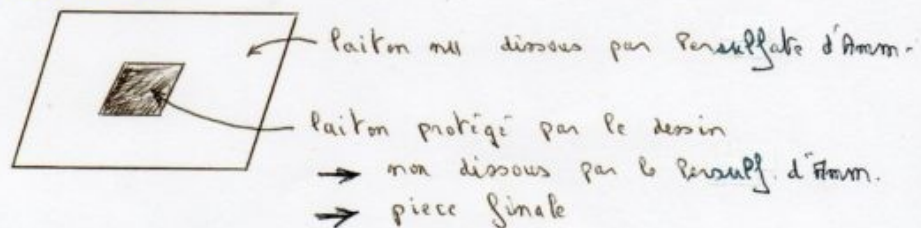 laiton nu dissous par Persulfate d'Amm.
laiton protégé par le dessin
→ non dissous par le Persulf. d'Amm.
→ piece finale